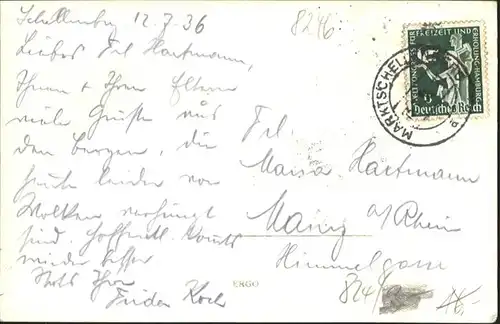 Schellenberg 12.7.36
8246
Liebes Frl. Hartmann,
Ihnen + Ihren Eltern
viele Grüße aus
den Bergen, die
heute leider von
Wolken verhängt
sind. Hoffentl.
wieder besser
Stets Ihre
Frieda Koch
Frl.
Maria Hartmann
Mainz a/Rhein
Himmelgasse
ERGO
WELTKONGRESS FÜR FREIZEIT UND ERHOLUNG HAMBURG
6
Deutsches Reich
MARKTSCHEL